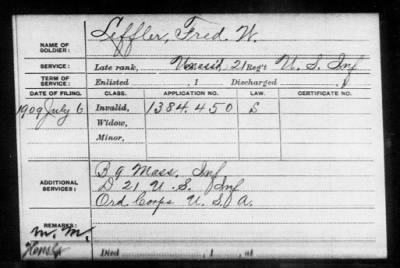 NAME OF SOLDIER: Leffler, Fred. W.
SERVICE: Late rank, 21 Reg't U. S. Inf
TERM OF SERVICE: Enlisted , 1 Discharged , 1
DATE OF FILING. CLASS. APPLICATION NO. LAW. CERTIFICATE NO.
1909 July 6 Invalid, 1384.450 S
Widow,
Minor,
ADDITIONAL SERVICES:
B 9 Mass. Inf
D 21 U. S. Inf
Ord Corps U. S. A.
REMARKS:
Died , 1 , at